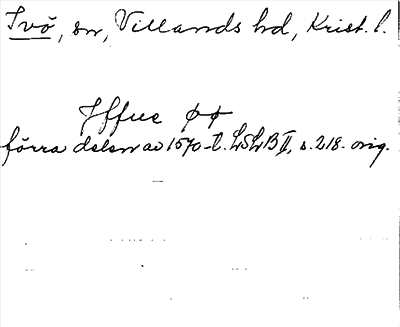 Ivö, sn, Villands hd, Krist. l.
Iffue ⌀⌀
förra delen av 1570-t. LSLB II, s. 218. orig.